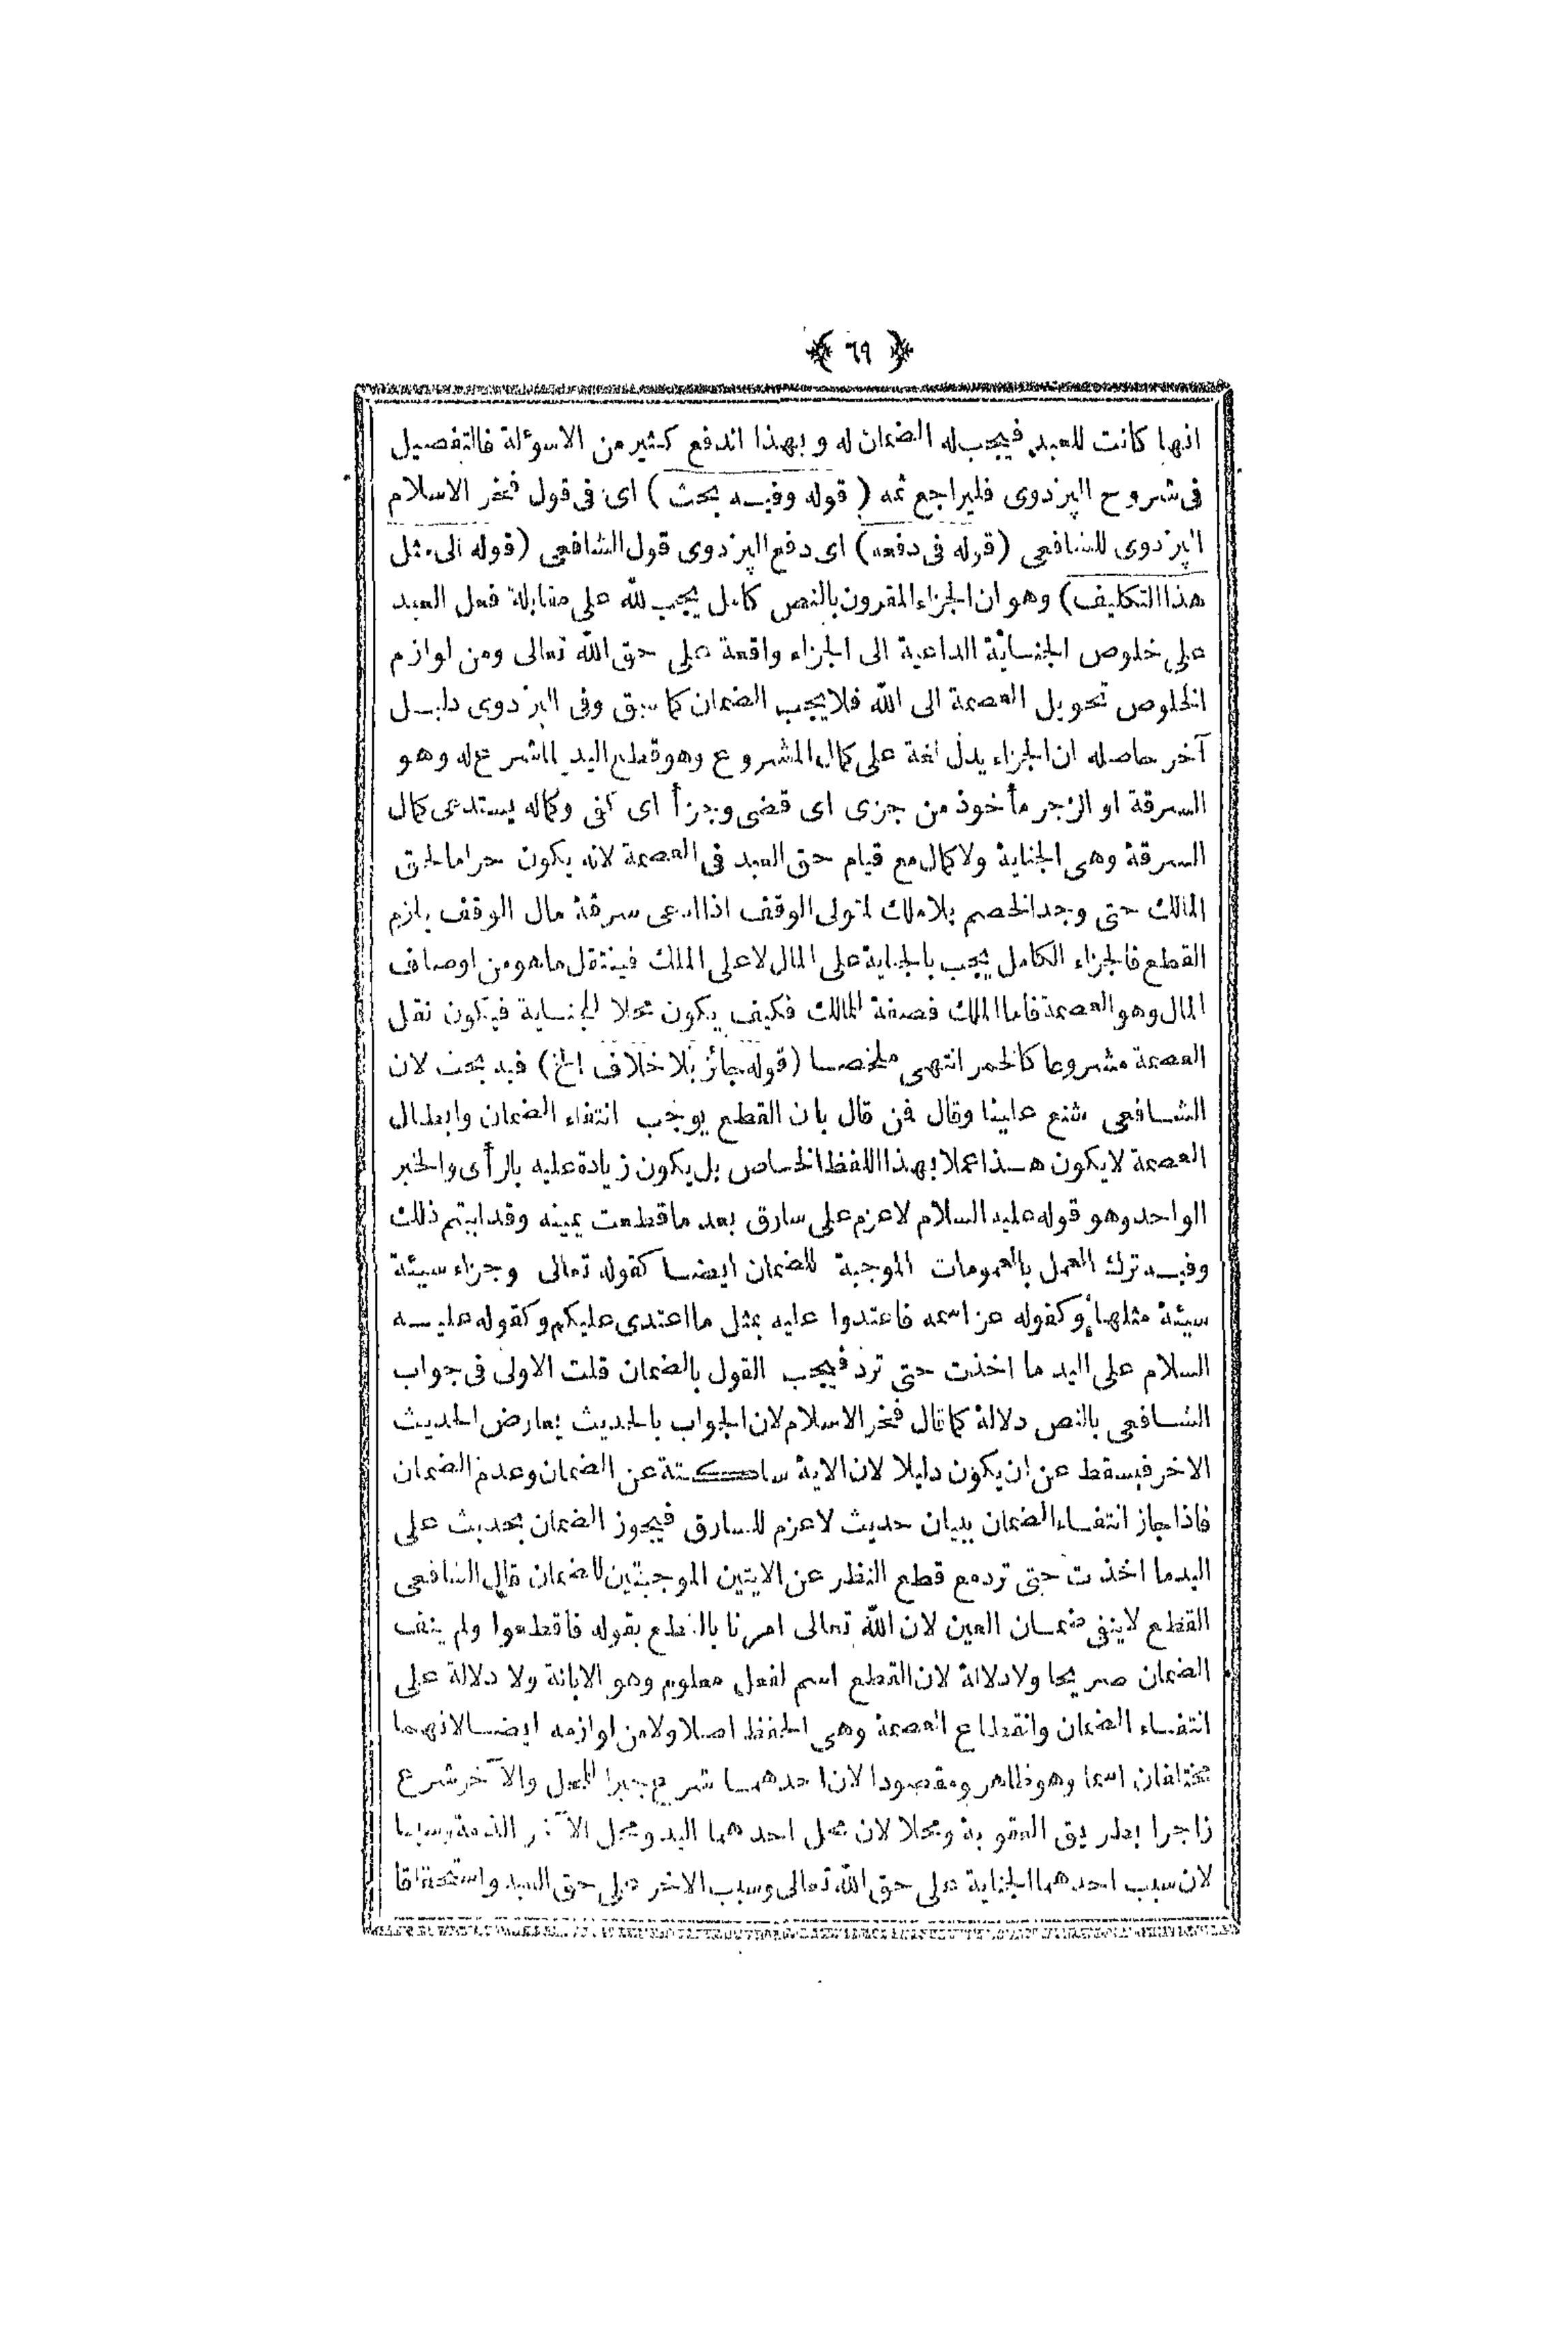 ﴿ ٦٩ ﴾
انها كانت للعبد فيجب له الضمان له وبهذا اندفع كثير من الاسوئلة فالتفصيل
فى شروح البزدوى فليراجع ثمه ( قوله وفيه بحث ) اى فى قول فخر الاسلام
البزدوى للشافعى (قوله فى دفعه) اى دفع البزدوى قول الشافعى (قوله الى مثل
هذا التكليف) وهو ان الجزاء المقرون بالنص كامل يجب لله على مقابلة فعل العبد
على خلوص الجناية الداعية الى الجزاء واقعة على حق الله تعالى ومن لوازم
الخلوص تحويل العصمة الى الله فلا يجب الضمان كما سبق وفى البزدوى دليل
آخر حاصله ان الجزاء يدل لغة على كمال المشروع وهو قطع اليد لما شرع له وهو
السرقة او الزجر مأخوذ من جزى اى قضى وجزأ اى كفى وكماله يستدعى كمال
السرقة وهى الجناية ولا كمال مع قيام حق العبد فى العصمة لانه يكون حراما لحق
المالك حتى وجد الخصم بلا ملك لمتولى الوقف اذا ادعى سرقة مال الوقف يلزم
القطع فالجزاء الكامل يجب بالجناية على المال لا على الملك فينتقل ما هو من اوصاف
المال وهو العصمة فاما الملك فصفة المالك فكيف يكون محلا للجناية فيكون نقل
العصمة مشروعا كالخمر انتهى ملخصا (قوله جائز بلا خلاف الخ) فيه بحث لان
الشافعى شنع علينا وقال فمن قال بان القطع يوجب انتفاء الضمان وابطال
العصمة لا يكون هذا عملا بهذا اللفظ الخاص بل يكون زيادة عليه بالرأى والخبر
الواحد وهو قوله عليه السلام لا غرم على سارق بعد ما قطعت يمينه وقد ابيتم ذلك
وفيه ترك العمل بالعمومات الموجبة للضمان ايضا كقوله تعالى وجزاء سيئة
سيئة مثلها وكقوله عز اسمه فاعتدوا عليه بمثل ما اعتدى عليكم وكقوله عليه
السلام على اليد ما اخذت حتى ترد فيجب القول بالضمان قلت الاولى فى جواب
الشافعى بالنص دلالة كما قال فخر الاسلام لان الجواب بالحديث يعارض الحديث
الاخر فيسقط عن ان يكون دليلا لان الاية ساكتة عن الضمان وعدم الضمان
فاذا جاز انتفاء الضمان ببيان حديث لا غرم للسارق فيجوز الضمان بحديث على
اليد ما اخذت حتى ترد مع قطع النظر عن الايتين الموجبتين للضمان قال الشافعى
القطع لا ينفى ضمان العين لان الله تعالى امرنا بالقطع بقوله فاقطعوا ولم ينف
الضمان صريحا ولا دلالة لان القطع اسم لفعل معلوم وهو الابانة ولا دلالة على
انتفاء الضمان وانقطاع العصمة وهى الحفظ اصلا ولا من لوازمه ايضا لانهما
مختلفان اسما وهو ظاهر ومقصودا لان احدهما شرع جبرا للمحل والآخر شرع
زاجرا بطريق العقوبة ومحلا لان محل احدهما اليد ومحل الآخر الذمة وسببا
لان سبب احدهما الجناية على حق الله تعالى وسبب الاخر على حق العبد واستحقاقا